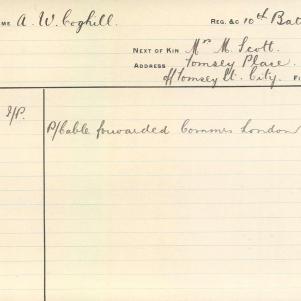 ME A. W. Coghill. REG. &C 10th Bat
NEXT OF KIN Mrs M. Scott.
ADDRESS Tomsey Place.
off Tomsey St. City. F
I/P. P/Cable forwarded Commrs London